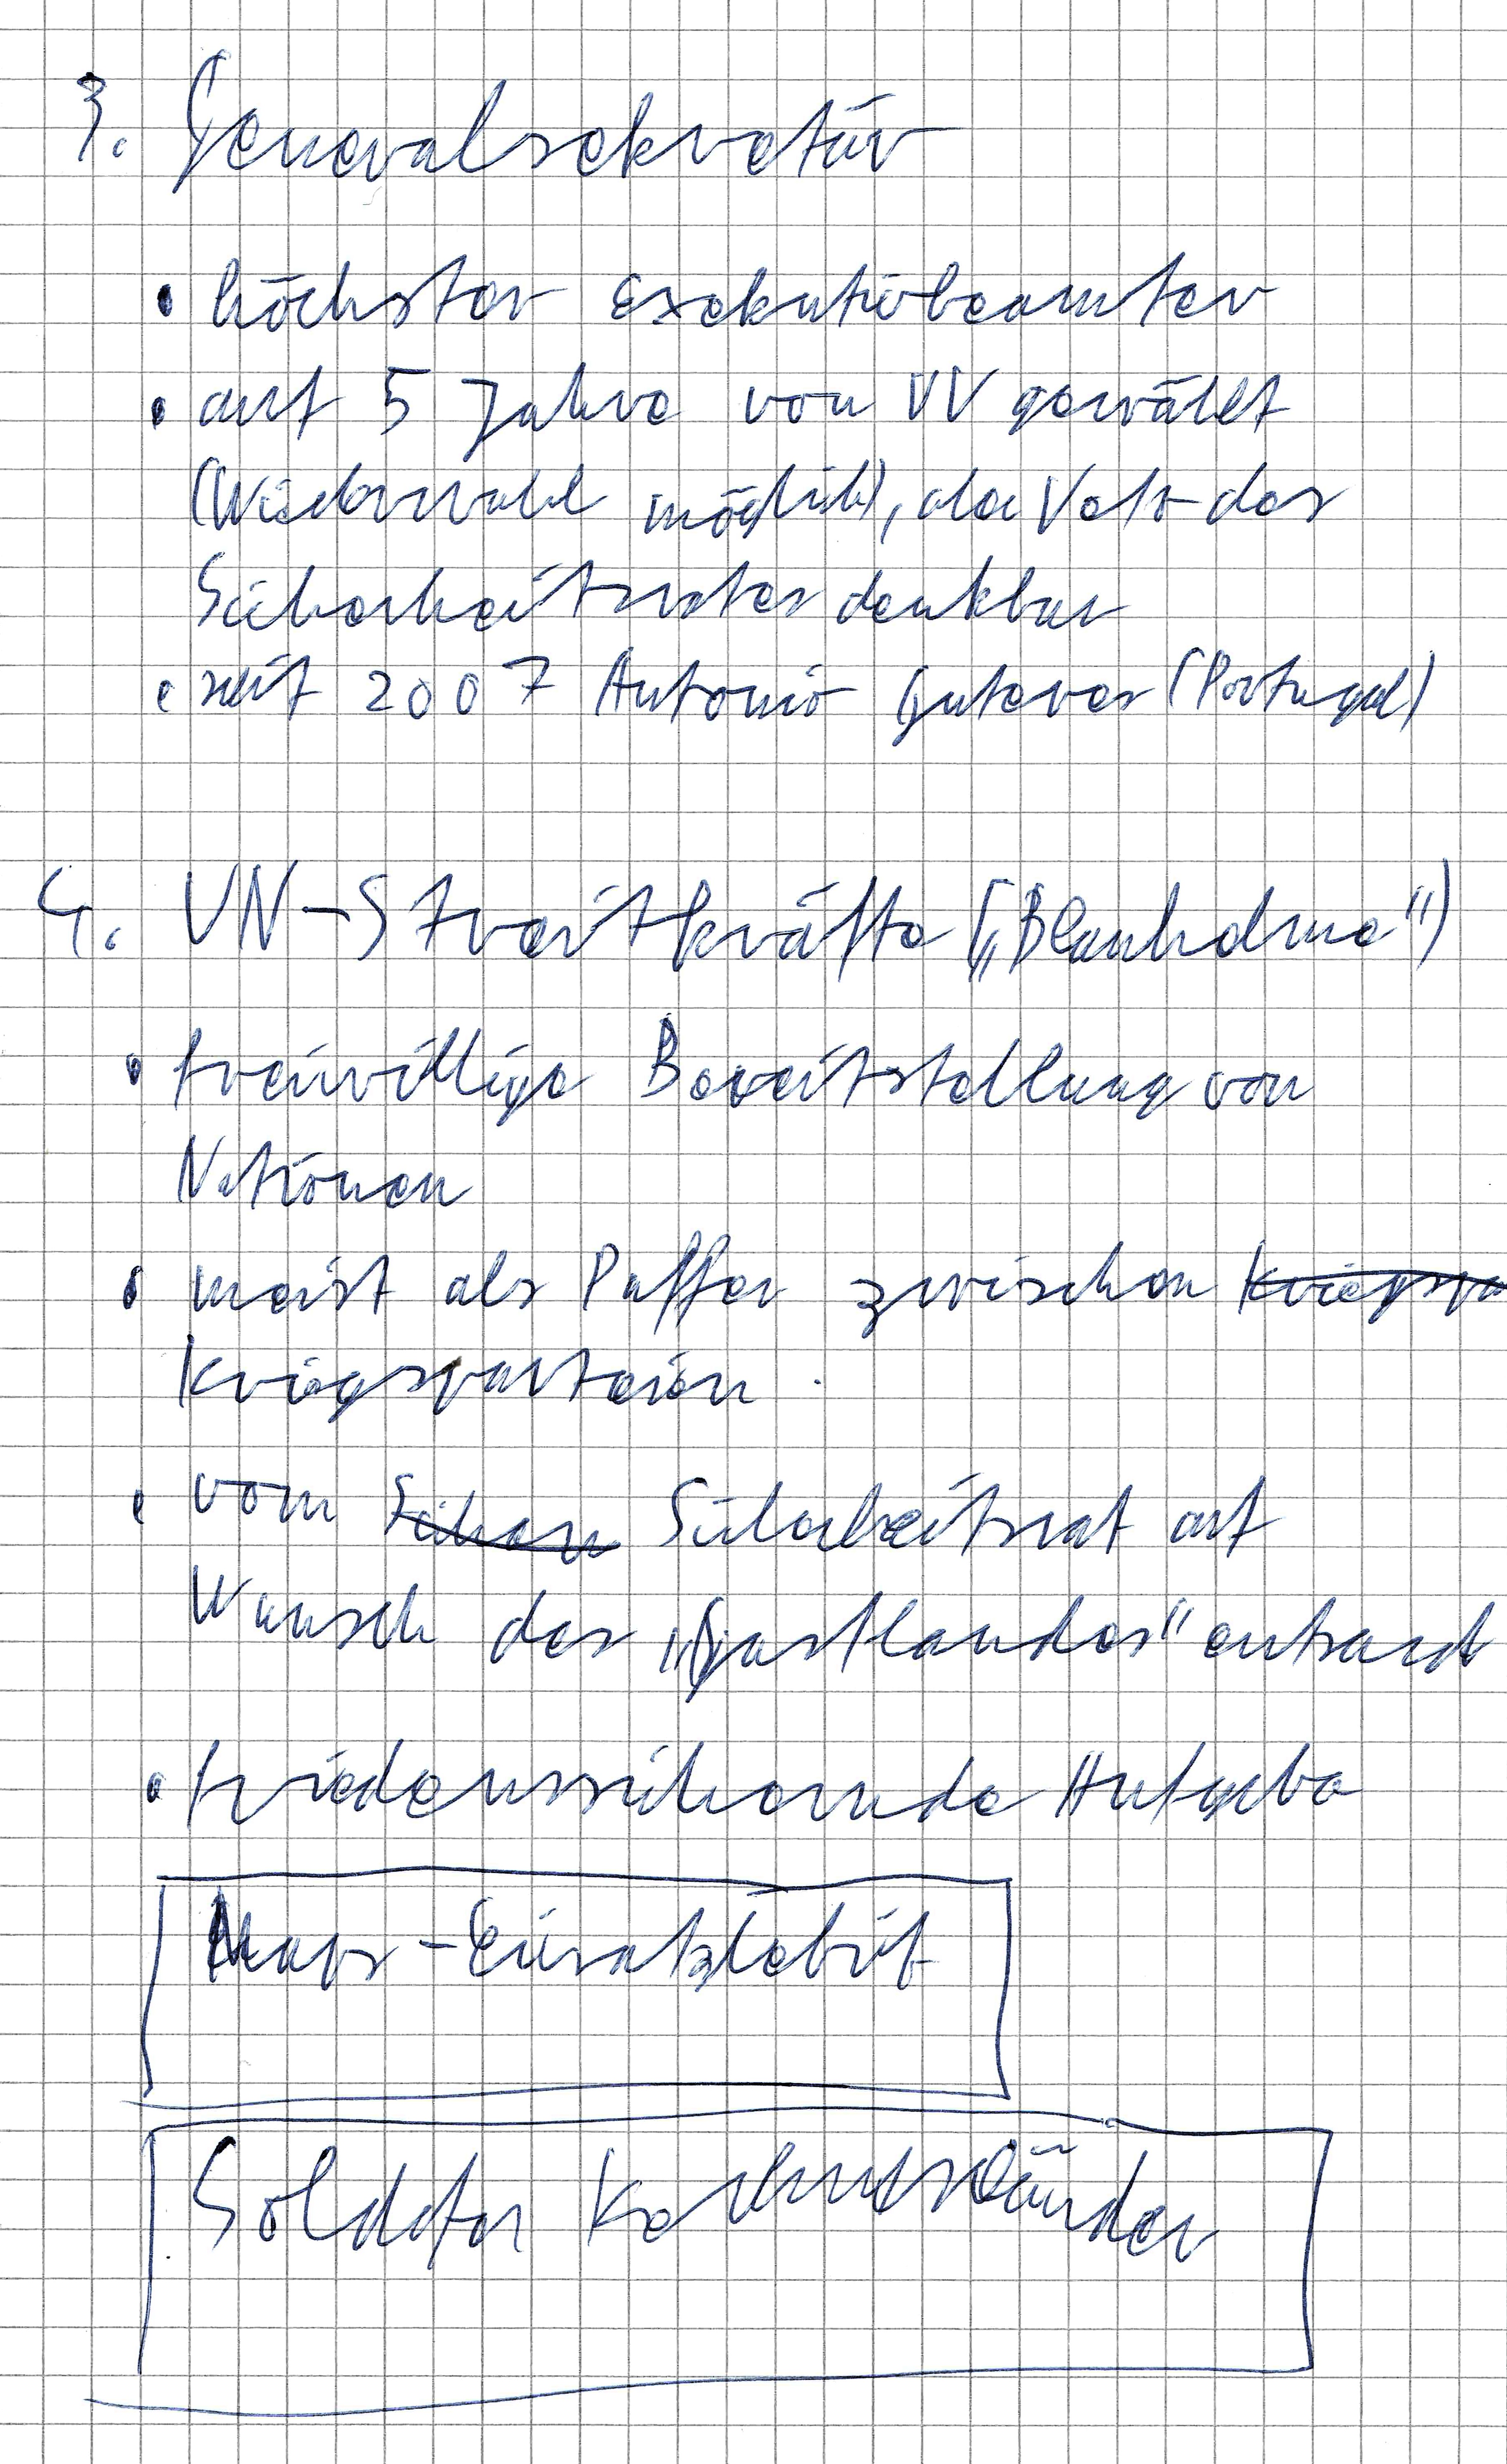 3. Generalsekretär
• höchster Exekutivbeamter
• auf 5 Jahre von VV gewählt
(Wiederwahl möglich), aber Veto des
Sicherheitsrates denkbar
• seit 2007 Antonio Guteres (Portugal)
4. VN-Streitkräfte („Blauhelme")
• freiwillige Bereitstellung von
Nationen
• meist als Puffer zwischen Kriegspa
Kriegsparteien.
• vom Sichern Sicherheitsrat auf
Wunsch des „Gastlandes" entsandt
• friedenssichernde Aufgabe
Maps-Einsatzgebiet
Soldaten Herkunftsländer